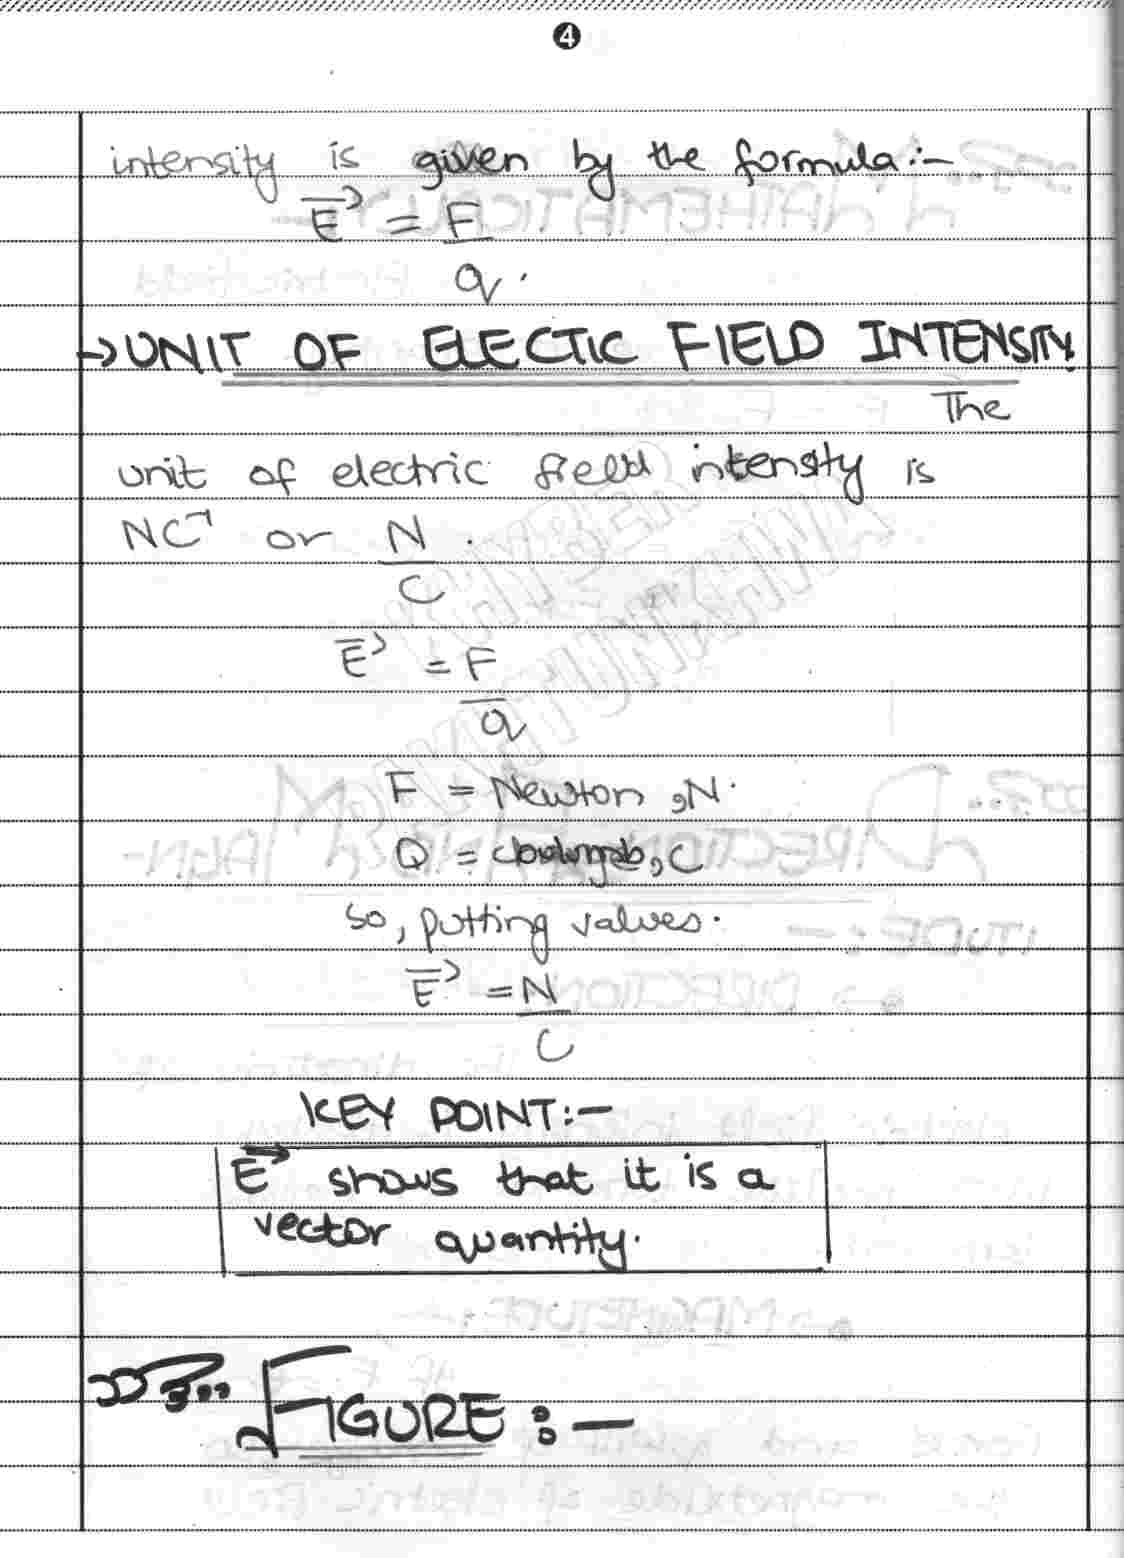 4
intensity is given by the formula:-
E⃗ = F
q.
→UNIT OF ELECTIC FIELD INTENSITY.
The
unit of electric field intensity is
NC⁻¹ or N.
C
E⃗ = F
q
F = Newton, N.
Q = , C
so, putting values.
E⃗ = N
C
KEY POINT:-
E⃗ shows that it is a
vector quantity.
FIGURE:-